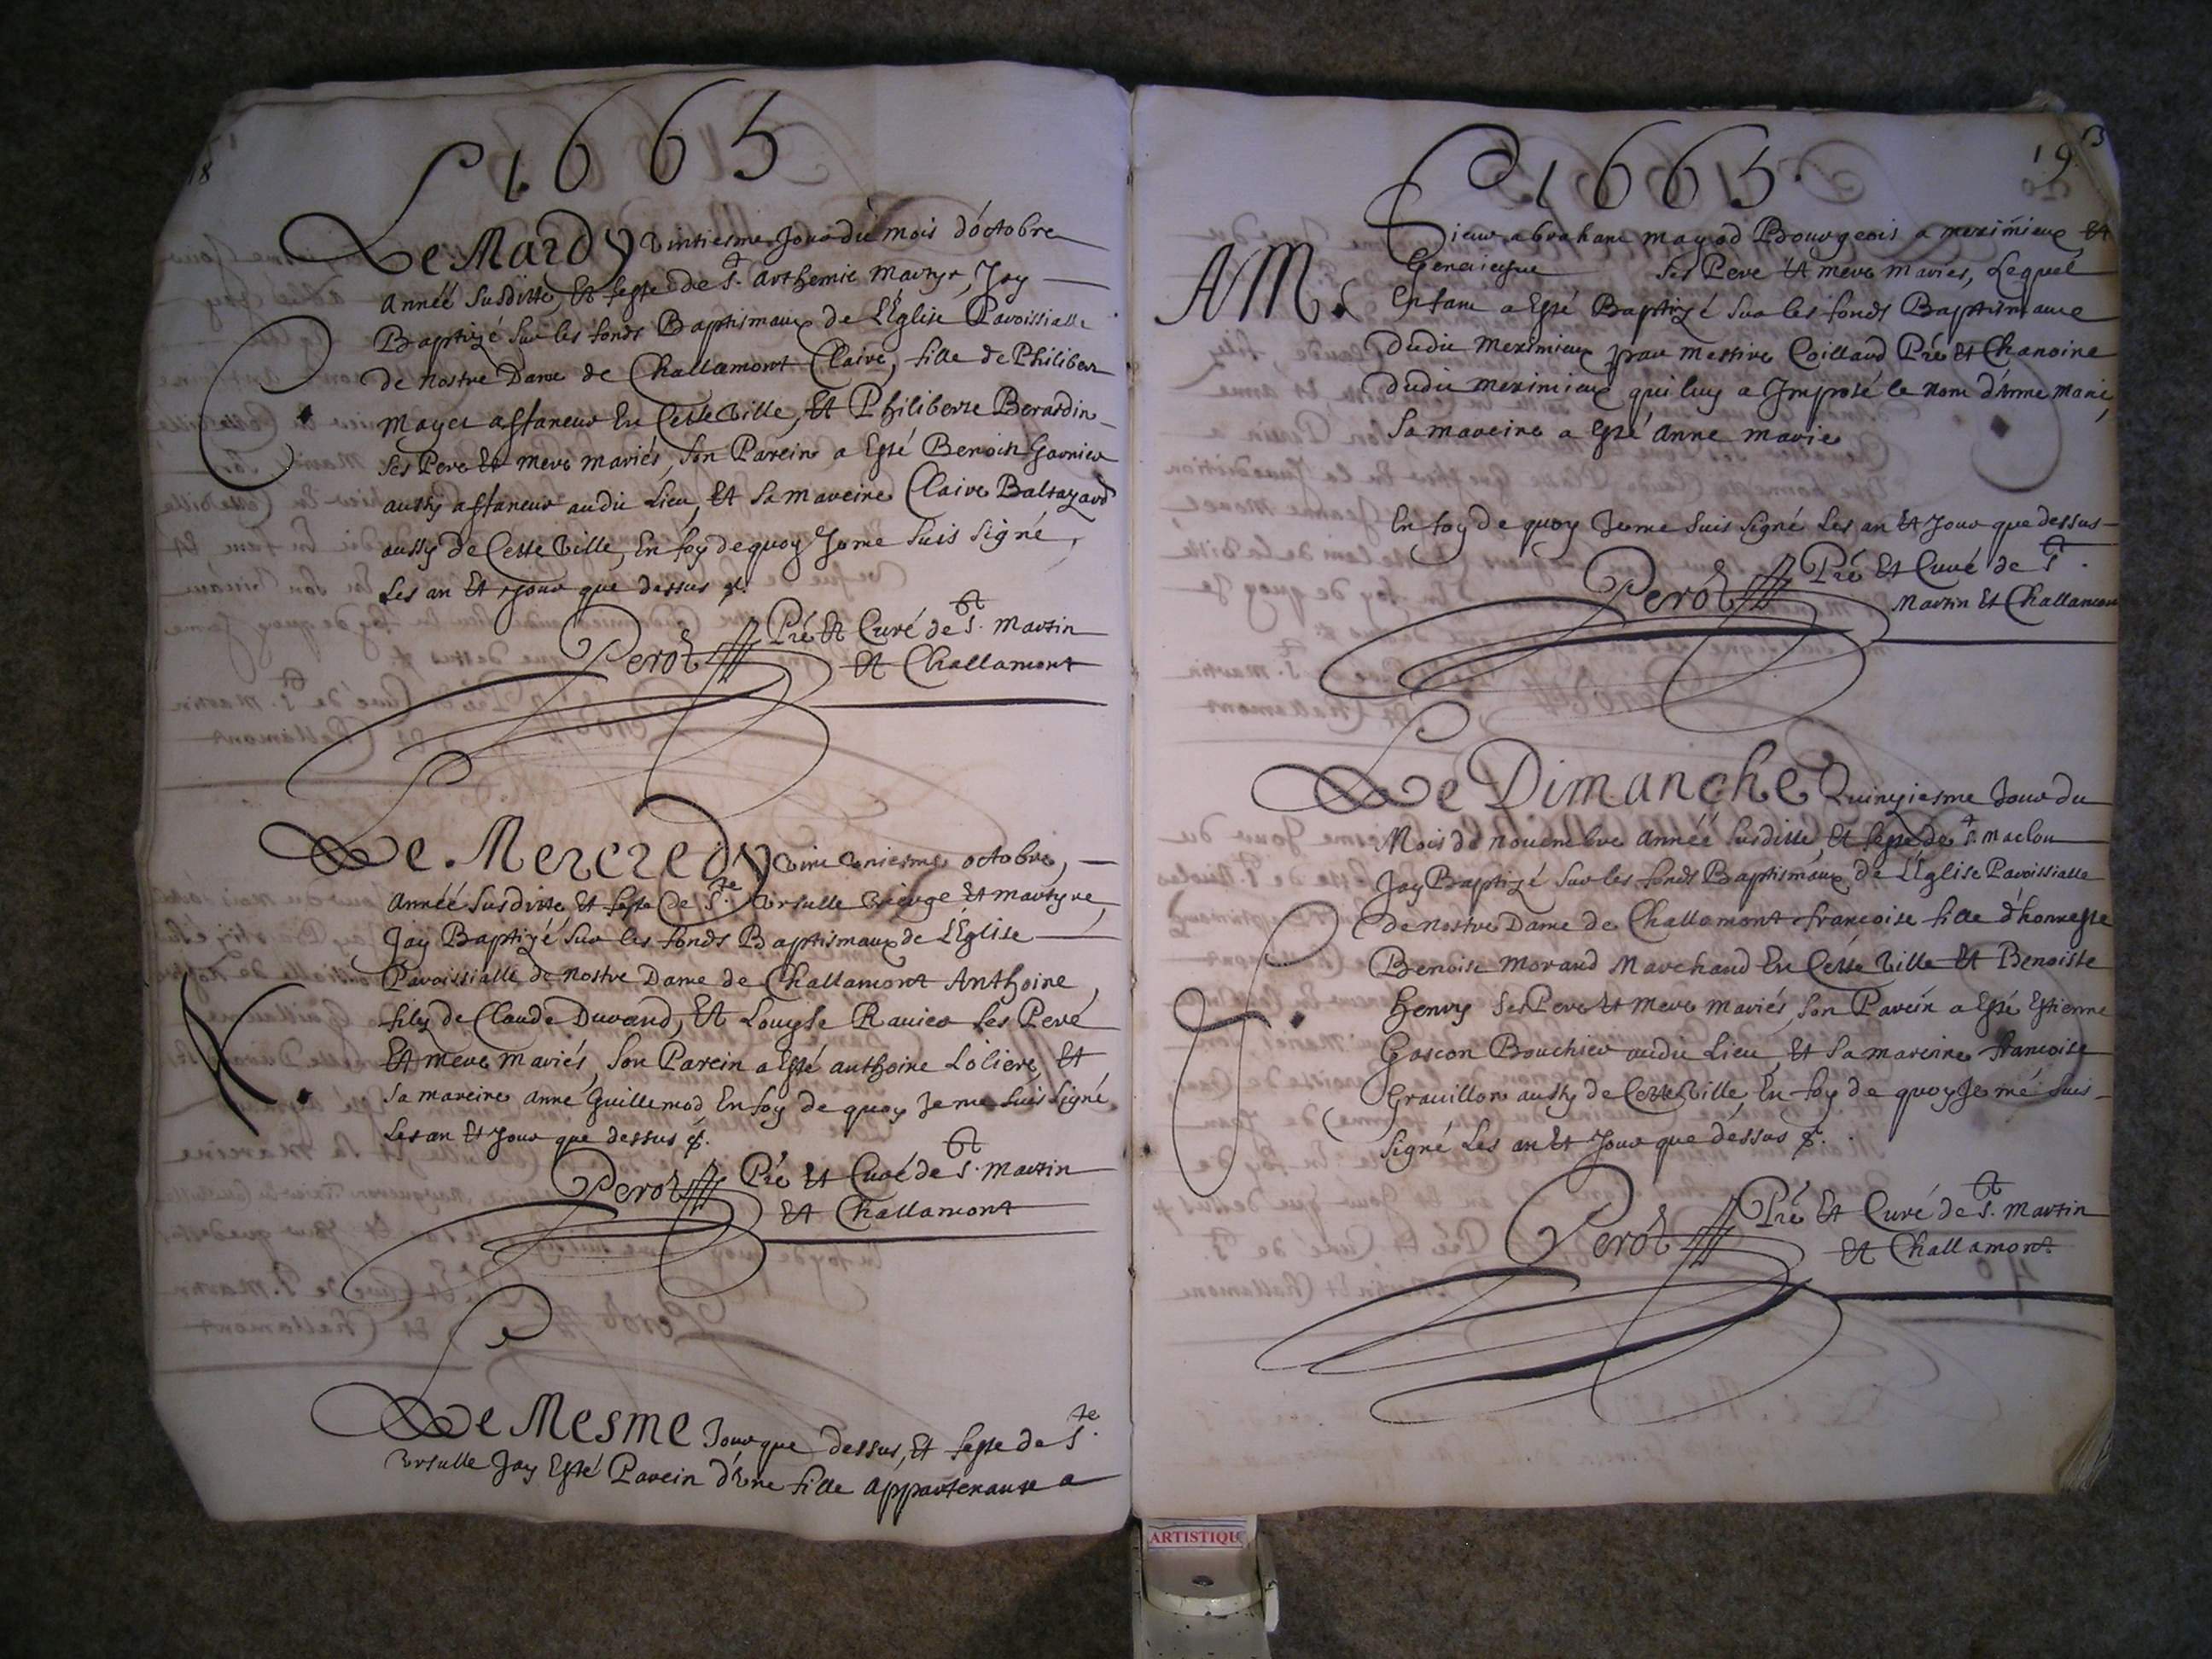 18
1665
Le Mardy vintiesme Jour du mois d'octobre
Année susditte, Et feste de St. Arthemie Martyr, Jay
Baptizé sur les fonds Baptismaux de L'Église Paroissialle
de nostre Dame de Challamont Claire, fille de Philibert
Mayet affaneur En Cette Ville, Et Philiberte Berardin
ses Pere Et mere mariés, son Parein a Esté Benoist Garnier
aussy affaneur audit Lieu, Et sa mareine Claire Baltazard
aussy de Cette Ville, En foy de quoy Je me suis signé,
Les an Et Jour que dessus &.
C.
Perod Pre Et Curé de St. Martin
Et Challamont
Le Mercredy vint Uniesme octobre,
Année susditte, Et feste de Ste. Ursulle Vierge Et martyre,
Jay Baptizé sur les fonds Baptismaux de L'Église
Paroissialle de nostre Dame de Challamont Anthoine,
filz de Claude Durand, Et Louyse Ravier ses Pere
Et mere mariés, son Parein a Esté anthoine Loliere, Et
sa mareine anne Guillemod En foy de quoy Je me suis signé
Les an Et Jour que dessus &.
A.
Perod Pre Et Curé de St. Martin
Et Challamont
Le Mesme Jour que dessus, Et feste de Ste.
Ursulle Jay Esté Parein d'Une fille appartenante a
19
1665
Sieur abraham mayod Bourgeois a meximieux Et
ses Pere Et mere mariés, Lequel
Enfant a Esté Baptizé sur les fonds Baptismaux
dudit Meximieux par messire Coillard Pre Et Chanoine
dudit meximieux qui luy a Imposé le nom d'Anne Marie,
Sa mareine a Esté Anne Marie
AM.
En foy de quoy Je me suis signé Les an Et Jour que dessus
Perod Pre Et Curé de St.
Martin Et Challamont
Le Dimanche Quinziesme Jour du
Mois de novembre Année susditte, Et feste de St. Maclou
Jay Baptizé sur les fonds Baptismaux de L'Église Paroissialle
de nostre Dame de Challamont francoise fille d'honneste
Benoist Morand Marchand En Cette Ville Et Benoiste
henry ses Pere Et mere mariés, son Parein a Esté Estienne
Gascon Bouchier audit Lieu, Et sa mareinne francoise
Gravillon aussy de Cette Ville, En foy de quoy Je me suis
signé Les an Et Jour que dessus &.
Perod Pre Et Curé de St. Martin
Et Challamont
ARTISTIQU